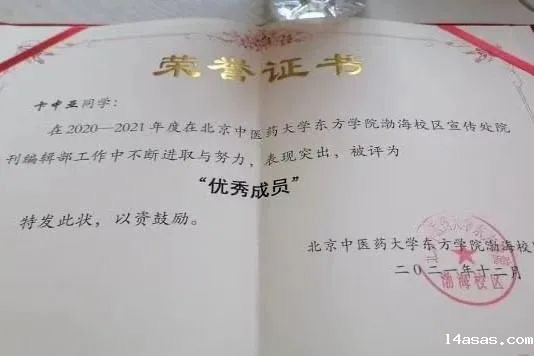 荣誉证书
卡中亚同学：
在2020—2021年度在北京中医药大学东方学院渤海校区宣传处院
刊编辑部工作中不断进取与努力，表现突出，被评为
“优秀成员”
特发此状，以资鼓励。
北京中医药大学东方学院渤海校
二〇二一年十二月
渤海校区
14asas.com